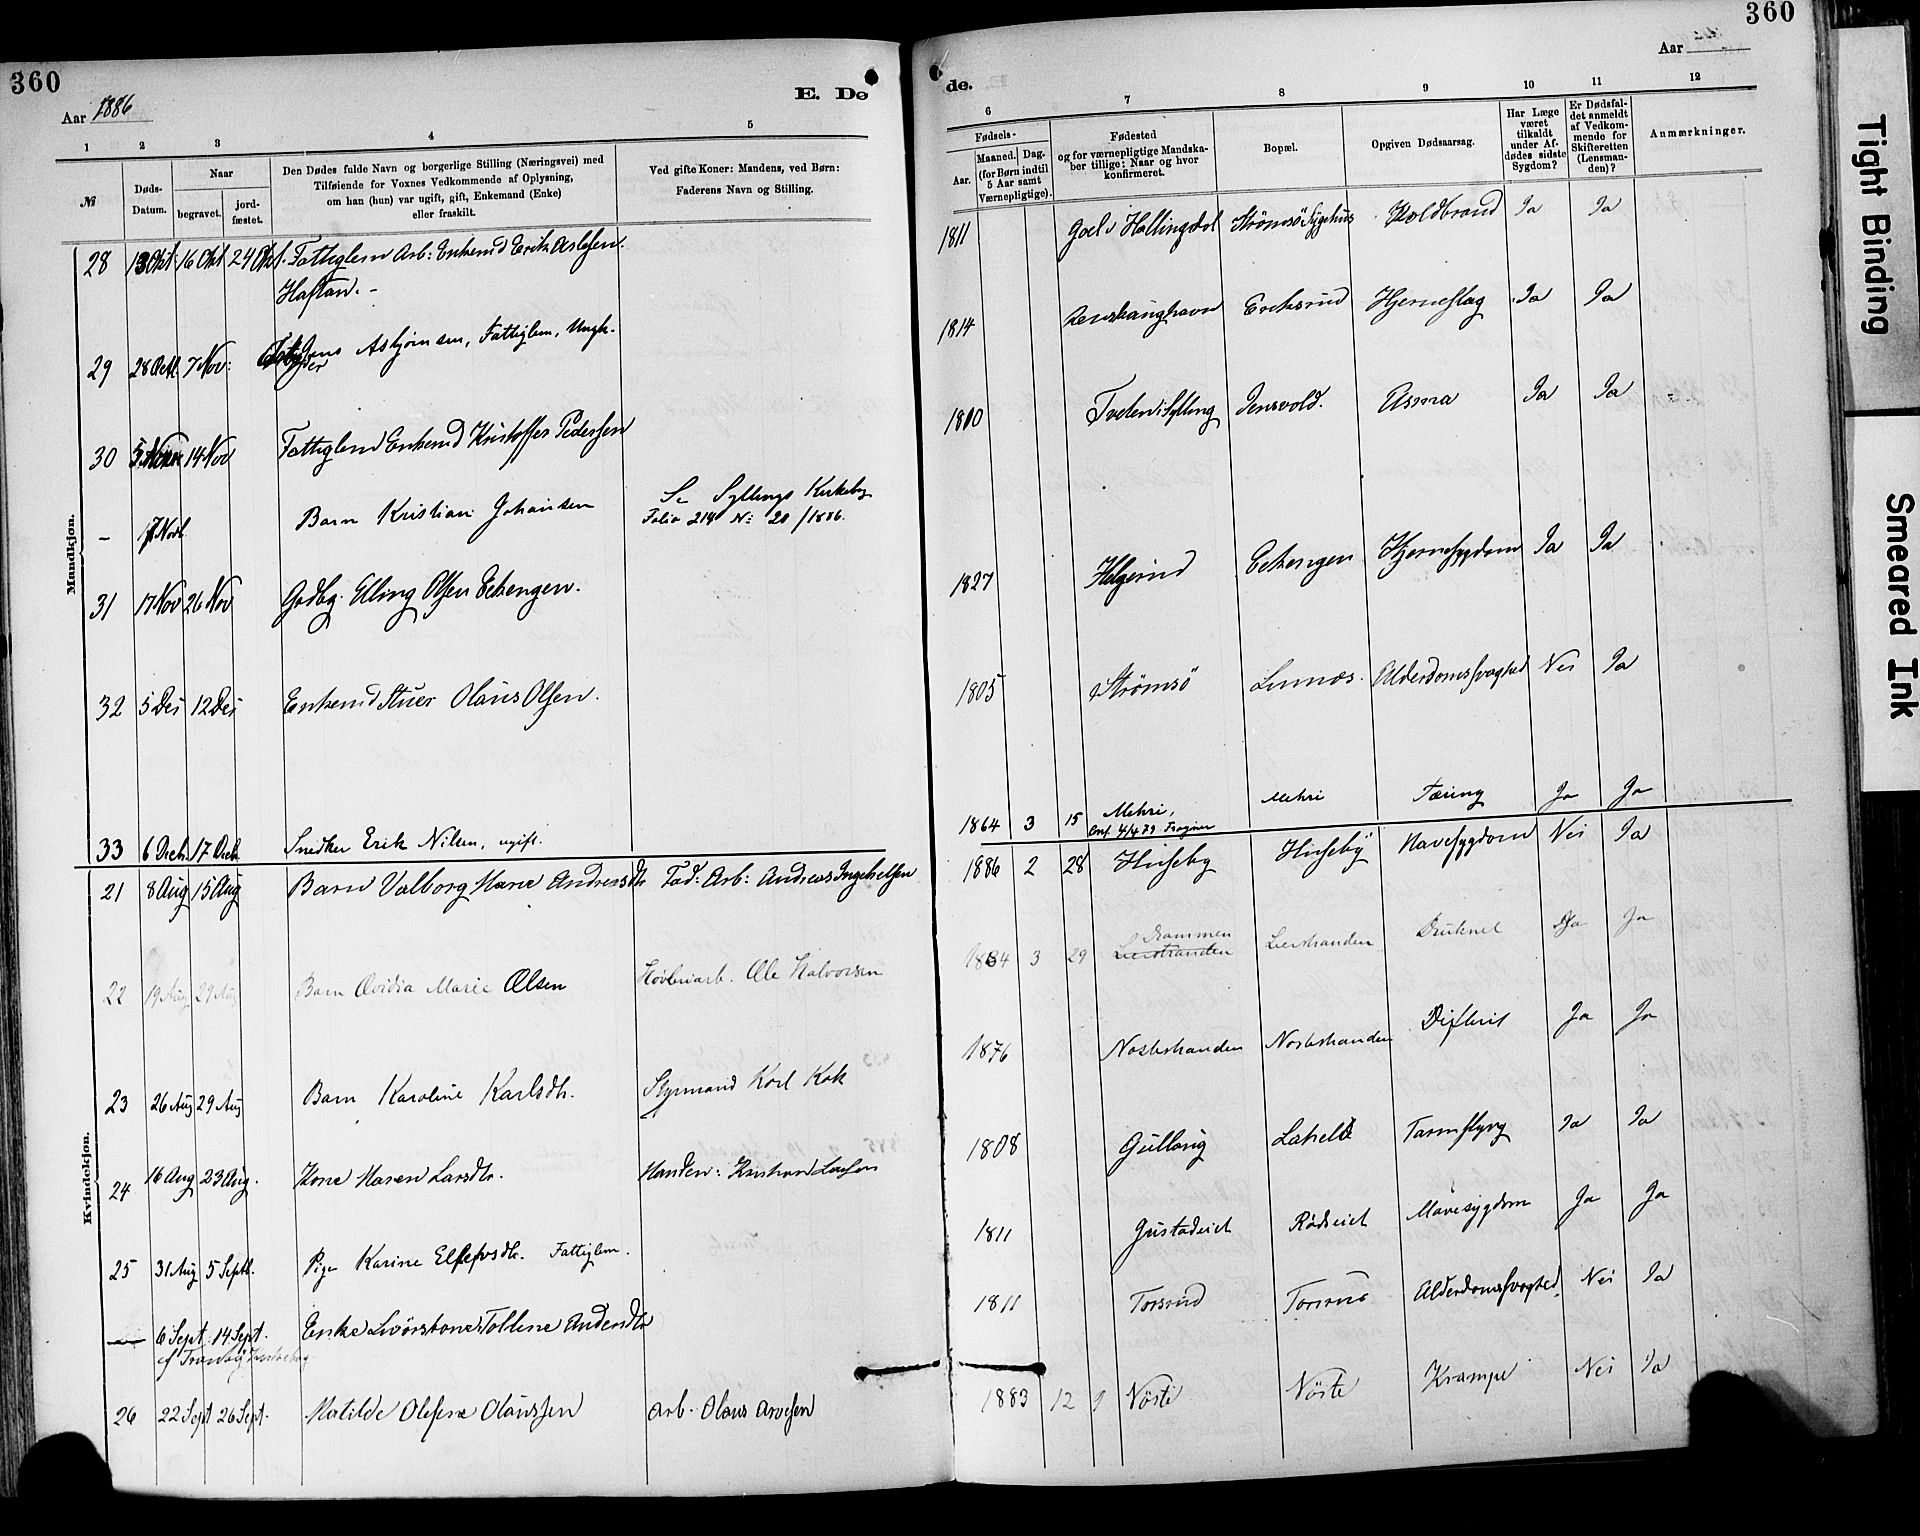 360
Aar 1886
E. Dø
1 2 3 4 5
№
Døds-
Datum.
Naar
begravet.
jord-
fæstet.
Den Dødes fulde Navn og borgerlige Stilling (Næringsvei) med
Tilføiende for Voxnes Vedkommende af Oplysning,
om han (hun) var ugift, gift, Enkemand (Enke)
eller fraskilt.
Ved gifte Koner: Mandens, ved Børn:
Faderens Navn og Stilling.
Mandkjøn.
28 13 Okt 16 Okt 24 Okt. Fattiglem Arb: Enkemd Erik Aslesen
Haftan.-
29 28 Oct. 7 Nov: Asbjørnsen, Fattiglem, Ungk.
30 5 14 Nov Fattiglem Enkemd Kristoffer Pedersen
- 17 Novb. Barn Kristian Johansen Se Syllings Kirkebog
Folio 214 N: 20/1886.
31 17 Nov 26 Nov Gdbg. Elling Olsen Eckengen.
32 5 Des 12 Des Enkemd Stuer Olaus Olsen.
33 6 Decb. 17 Decb Snedker Erik Nilsen, ugift.
Kvindekjøn.
21 8 Aug 15 Aug Barn Valborg Marie Andreasdtr Fad: Arb: Andreas Ingebretsen
22 19 Aug 29 Aug Barn Ovidia Marie Olsen Høvleriarb. Ole Halvorsen
23 26 Aug 29 Aug Barn Karoline Karlsdtr. Styrmand Karl Kok
24 16 Aug 23 Aug. Kone Maren Larsdtr. Manden: Kristian Larsen
25 31 Aug 5 Septb. Pige Karine Ellefsdtr. Fattiglem.
— 6 Sept. 14 Sept. Enke Tolline Andersdtr
cf Tranby Kirkebog
26 22 Sept 26 Sept. Matilde Olefine Olaussen Arb. Olaus Arvesen
360
Aar
de.
6 7 8 9 10 11 12
Fødsels-
Aar.
Maaned.
Dag.
(for Børn indtil
5 Aar samt
Værnepligtige).
Fødested
og for værnepligtige Mandska-
ber tillige: Naar og hvor
konfirmeret.
Bopæl.
Opgiven Dødsaarsag.
Har Læge
været
tilkaldt
under Af-
dødes sidste
Sygdom?
Er Dødsfal-
det anmeldt
af Vedkom-
mende for
Skifteretten
(Lensman-
den)?
Anmærkninger.
1811 Goel i Hallingdal Strømsö Sygehus Koldbrand Ja Ja
1814 Eriksrud Hjerneslag Ja Ja
1810 Tveten i Sylling Jensvold. Asma Ja Ja
1827 Helgerud Eckengen Hjernesygdom Ja Ja
1805 Strømsö Linnes. Alderdomssvaghed Nei Ja
1864 3 15 Mehri, Mehri Tæring Ja Ja
Conf. 4/4 79 Frogner
1886 2 28 Huseby Huseby Mavesygdom Nei Ja
1884 3 29 Drammen Lierstranden Druknet Ja Ja
Lierstranden
1876 Nostestranden Nostestranden Difterit Ja Ja
1808 Gullaug Lahell Tarmslyng Ja Ja
1811 Gustadeiet Rødseiet Mavesygdom Ja Ja
1811 Torsrud Torsrud Alderdomssvaghed. Nei Ja
1883 12 9 Nöste Nöste Krampe Nei Ja
Tight Binding
Smeared Ink